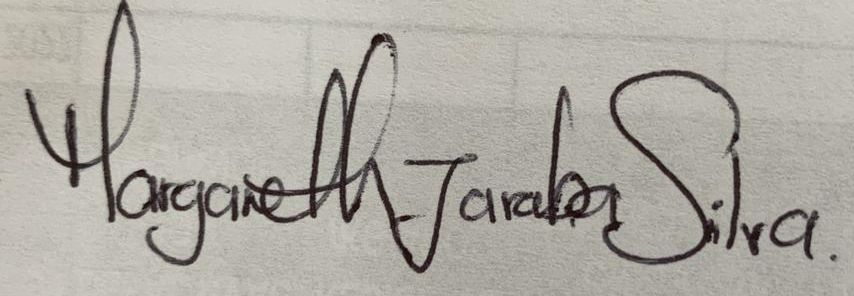 Margareth Jaraba Silva.